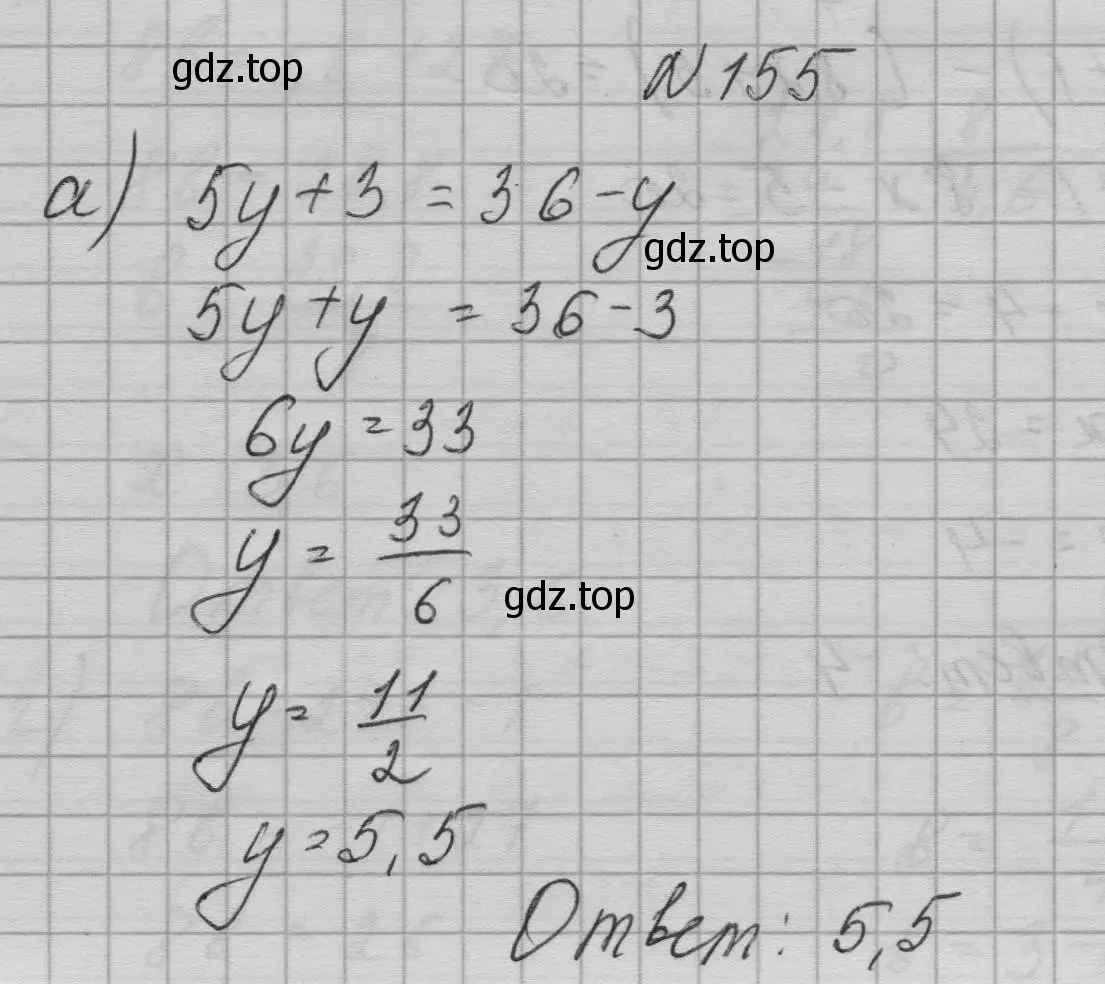 gdz.top
№ 155
а) 5y + 3 = 36 - y
gdz.top
5y + y = 36 - 3
6y = 33
y = 33/6
gdz.top
y = 11/2
y = 5,5
Ответ: 5,5